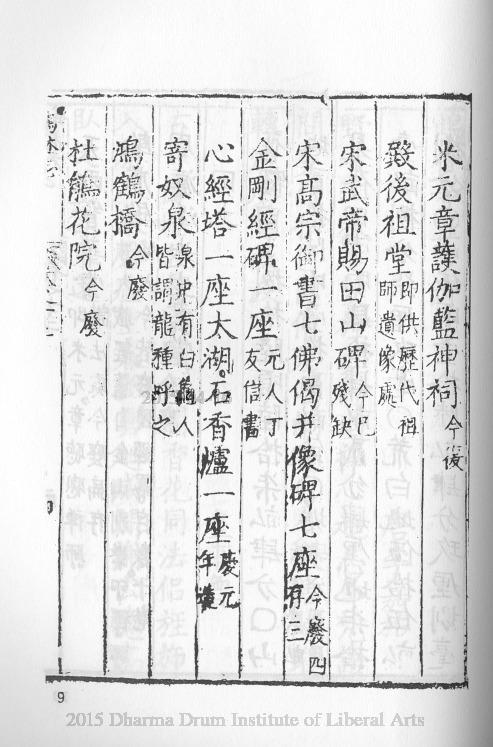 米元章護伽藍神祠今後
毀後祖堂即供歷代祖師遺像處
宋武帝賜田山碑今已殘缺
宋髙宗御書七佛偈并像碑七座今廢四存三
金剛經碑一座元人丁友信書
心經塔一座太湖石香爐一座慶元年
寄奴泉泉中有白龜人皆謂龍種呼之
鴻鶴橋今廢
杜鵑花院今廢
9
2015 Dharma Drum Institute of Liberal Arts